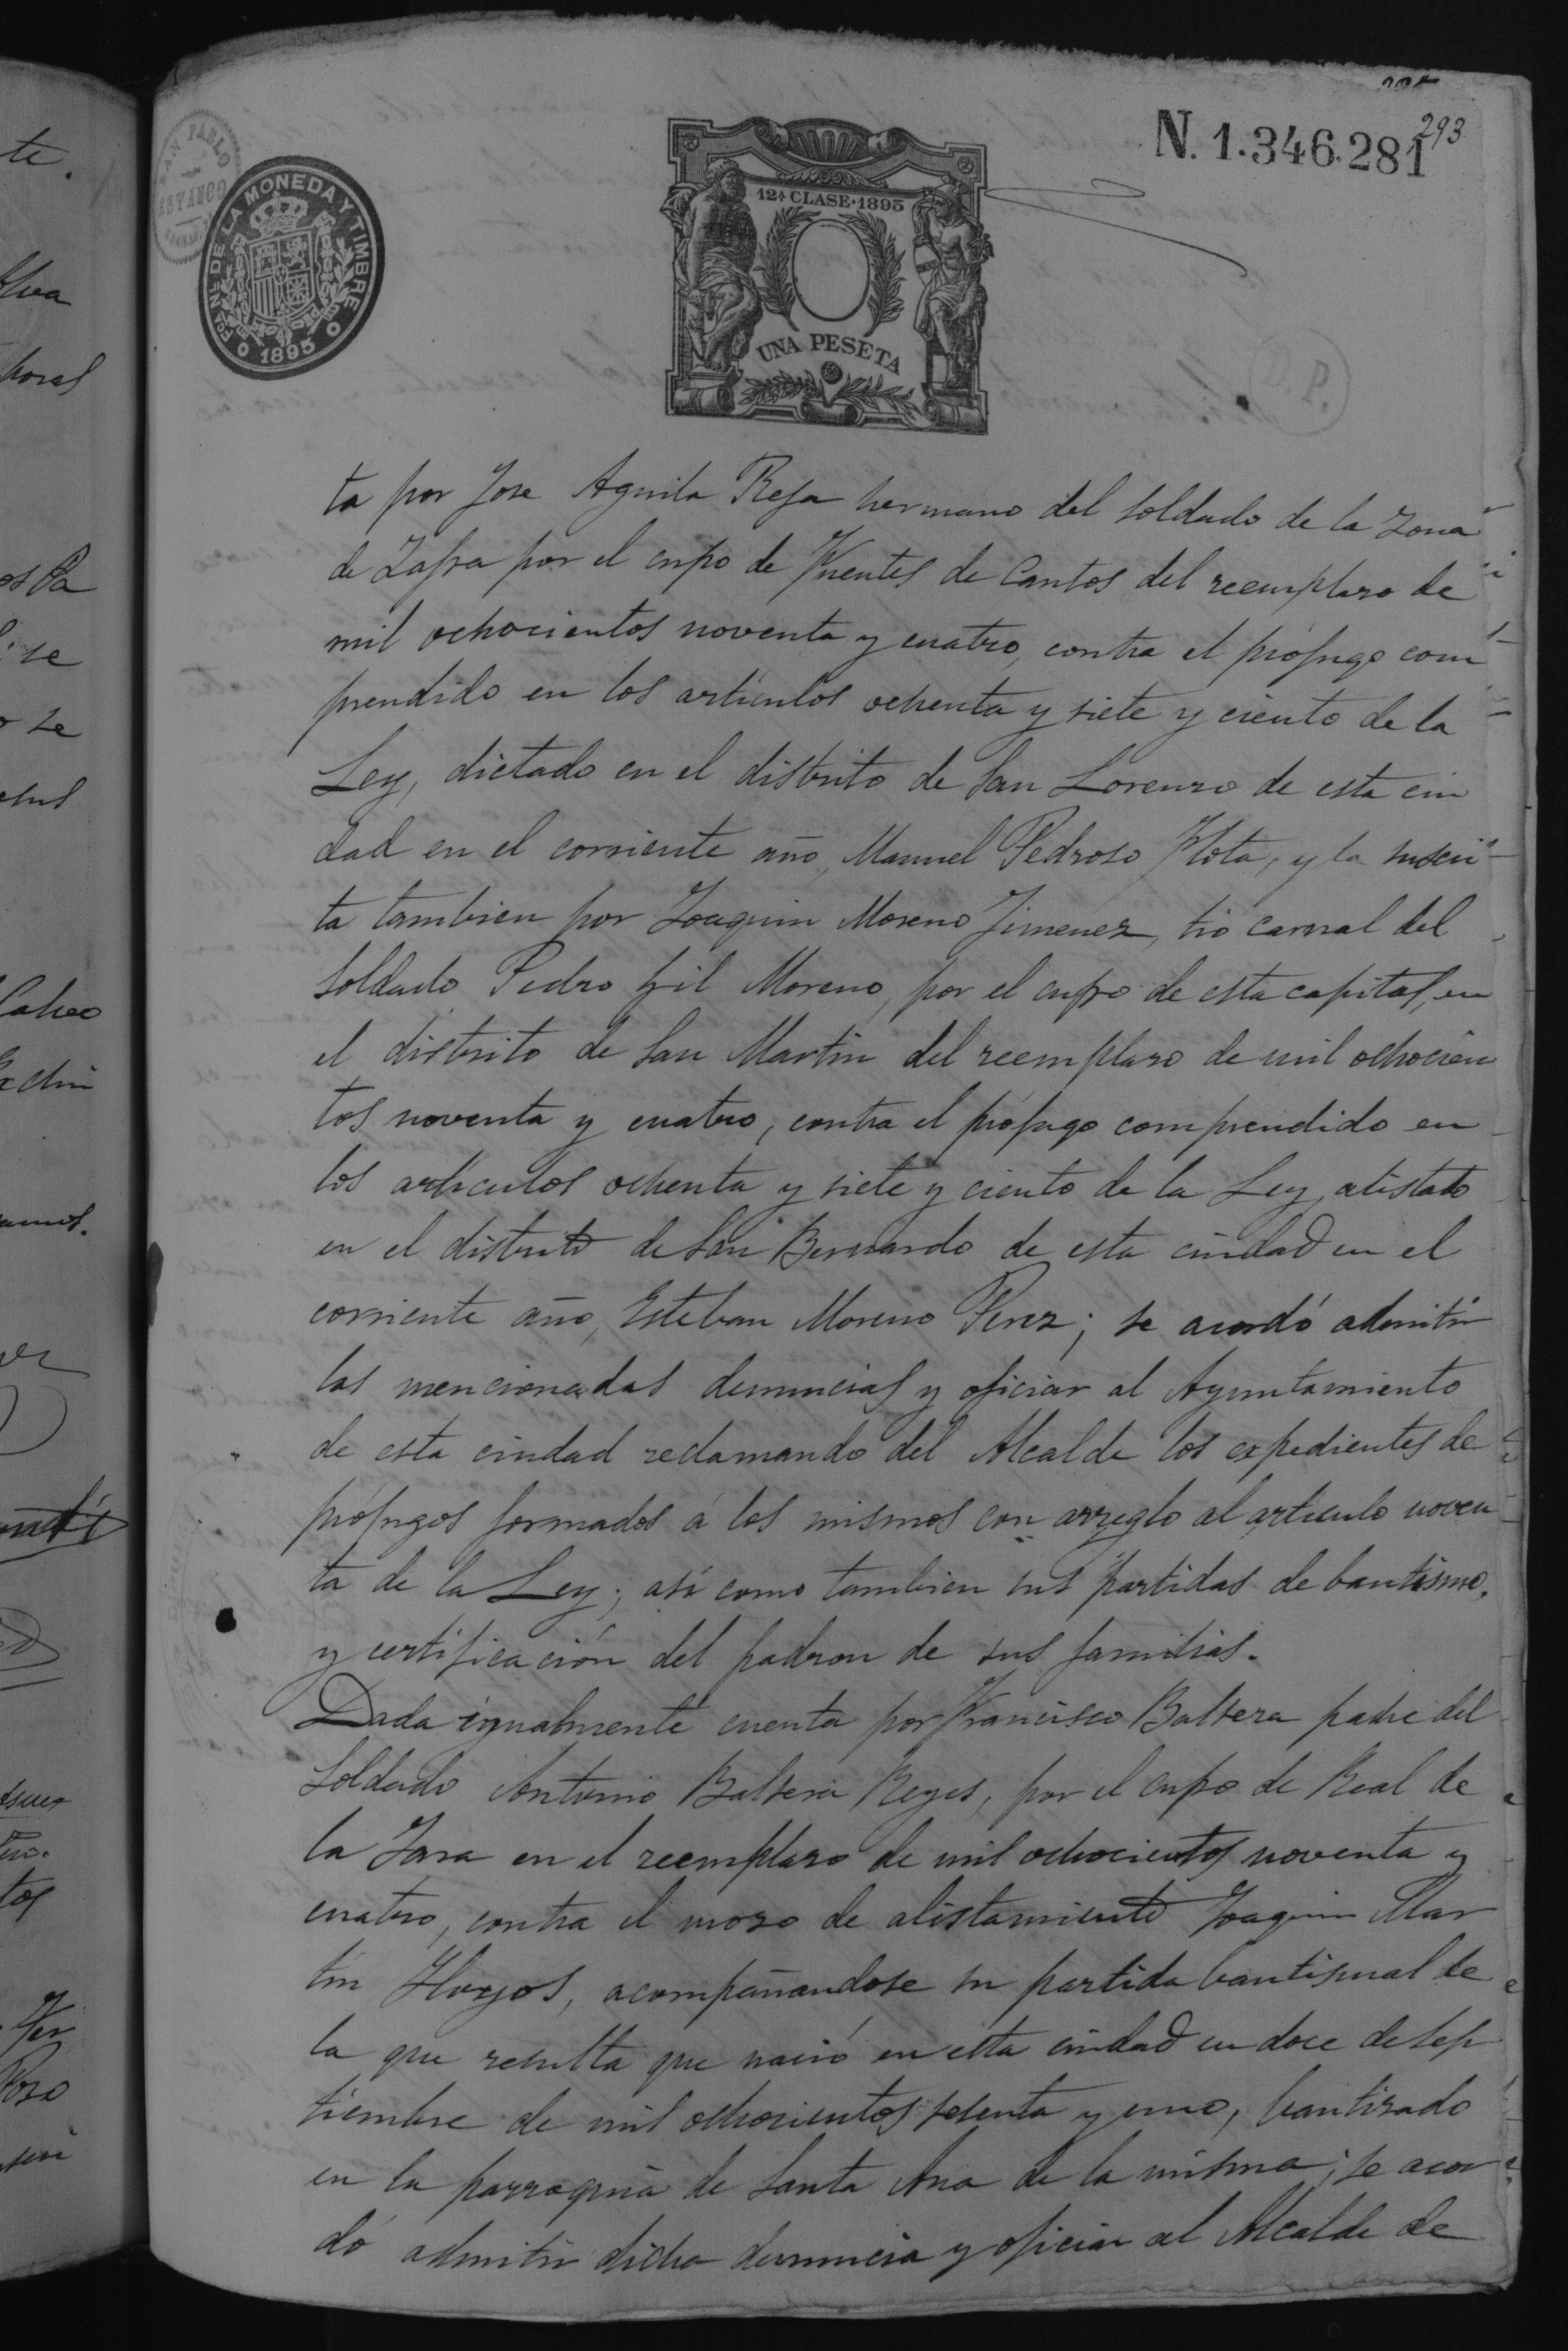 N. 1.346.281
293
SAN PABLO
ESTANCO
FCA. NL. DE LA MONEDA Y TIMBRE
1895
12ª CLASE·1895
UNA PESETA
ta por Jose Aguila Reja hermano del soldado de la Zona
de Zafra por el cupo de Fuentes de Cantos del reemplazo de
mil ochocientos noventa y cuatro, contra el prófugo com
prendido en los artículos ochenta y siete y ciento de la
Ley, dictado en el distrito de San Lorenzo de esta ciu
dad en el corriente año, Manuel Pedroso Flota, y la suscri
ta tambien por Joaquin Moreno Jimenez, tio carnal del
soldado Pedro Gil Moreno, por el cupo de esta capital, en
el distrito de San Martin del reemplazo de mil ochocien
tos noventa y cuatro, contra el prófugo comprendido en
los artículos ochenta y siete y ciento de la Ley, alistado
en el distrito de San Bernardo de esta ciudad en el
corriente año, Esteban Moreno Perez; se acordó admitir
las mencionadas denuncias y oficiar al Ayuntamiento
de esta ciudad reclamando del Alcalde los expedientes de
prófugos formados á los mismos con arreglo al artículo noven
ta de la Ley; así como tambien sus partidas de bautismo,
y certificación del padron de sus familias.
Dada igualmente cuenta por Francisco Baltera padre del
soldado Antonio Baltera Reyes, por el cupo de Real de
la Jara en el reemplazo de mil ochocientos noventa y
cuatro, contra el mozo de alistamiento Joaquin Mar
tin Hoyos, acompañandose su partida bautismal de
la que resulta que nació en esta ciudad en doce de sep
tiembre de mil ochocientos setenta y uno, bautizado
en la parroquia de Santa Ana de la misma; se acor
dó admitir dicha denuncia y oficiar al Alcalde de